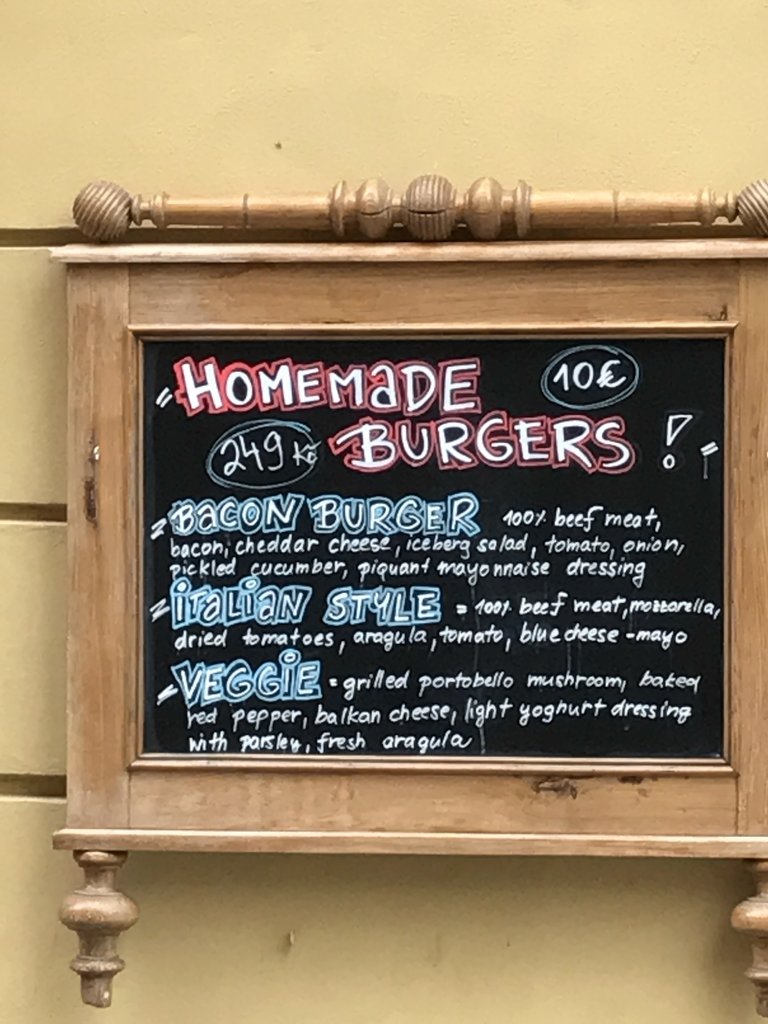 HOMEMADE 10€
249 Kč BURGERS!
BACON BURGER 100% beef meat,
bacon, cheddar cheese, iceberg salad, tomato, onion,
pickled cucumber, piquant mayonnaise dressing
ITALIAN STYLE = 100% beef meat, mozzarella,
dried tomatoes, aragula, tomato, blue cheese -mayo
VEGGIE = grilled portobello mushroom, baked
red pepper, balkan cheese, light yoghurt dressing
with parsley, fresh aragula